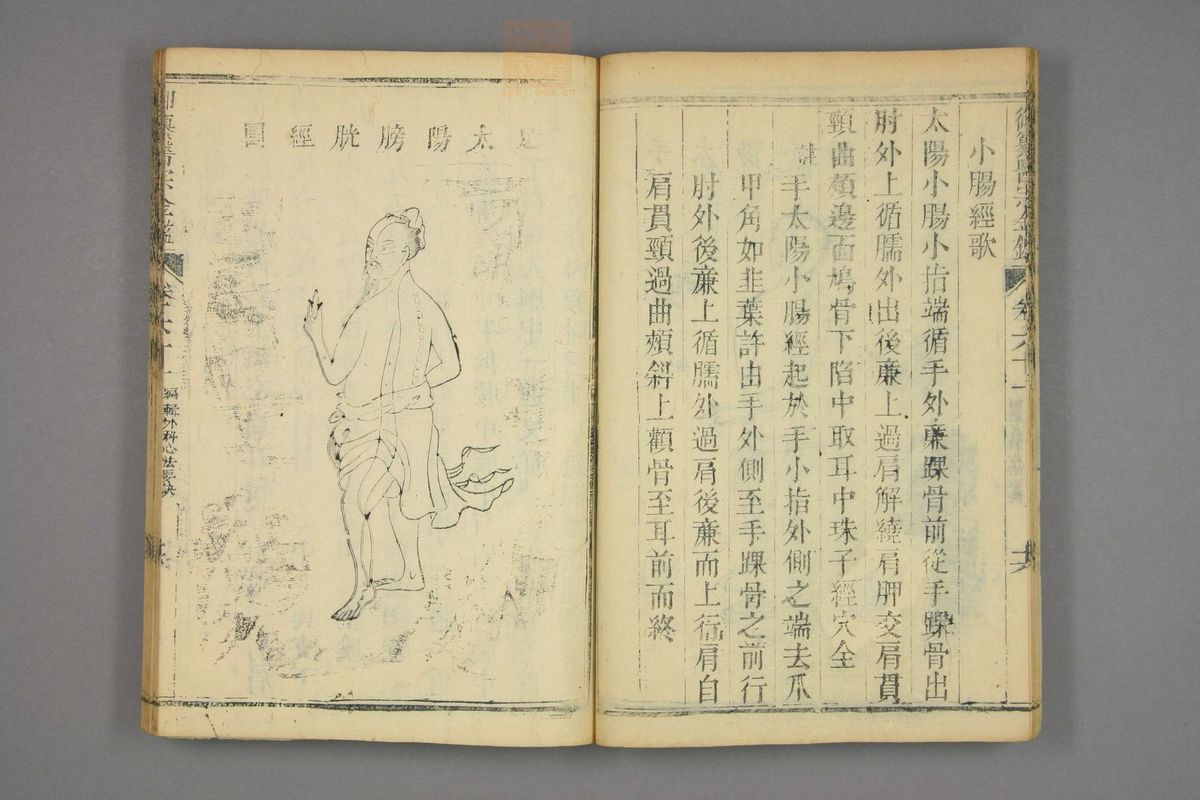 小腸經歌
太陽小腸小指端循手外廉踝骨前從手踝骨出
肘外上循臑外出後廉上過肩解繞肩胛交肩貫
頸曲頰邊面鳩骨下陷中取耳中珠子經穴全
註
手太陽小腸經起於手小指外側之端去爪
甲角如韭葉許由手外側至手踝骨之前行
肘外後廉上循臑外過肩後廉而上行肩自
肩貫頸過曲頰斜上顴骨至耳前而終
足太陽膀胱經圖
卷六十一
編輯外科心法要訣